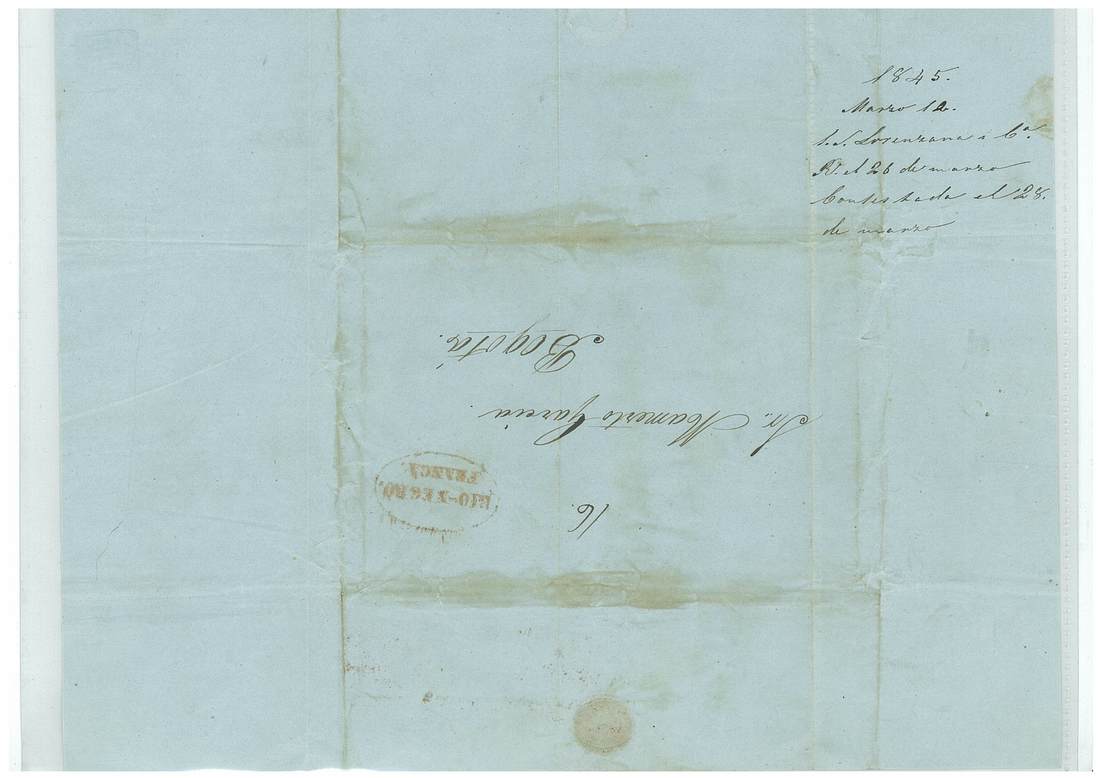 1845.
Marzo 12.
S. S. Lorenzana i Ca.
R. el 26 de marzo
Contestada el 28.
de marzo
16.
RIO-NEGRO.
FRANCA
Sr. Mamerto Garcia.
Bogotá.